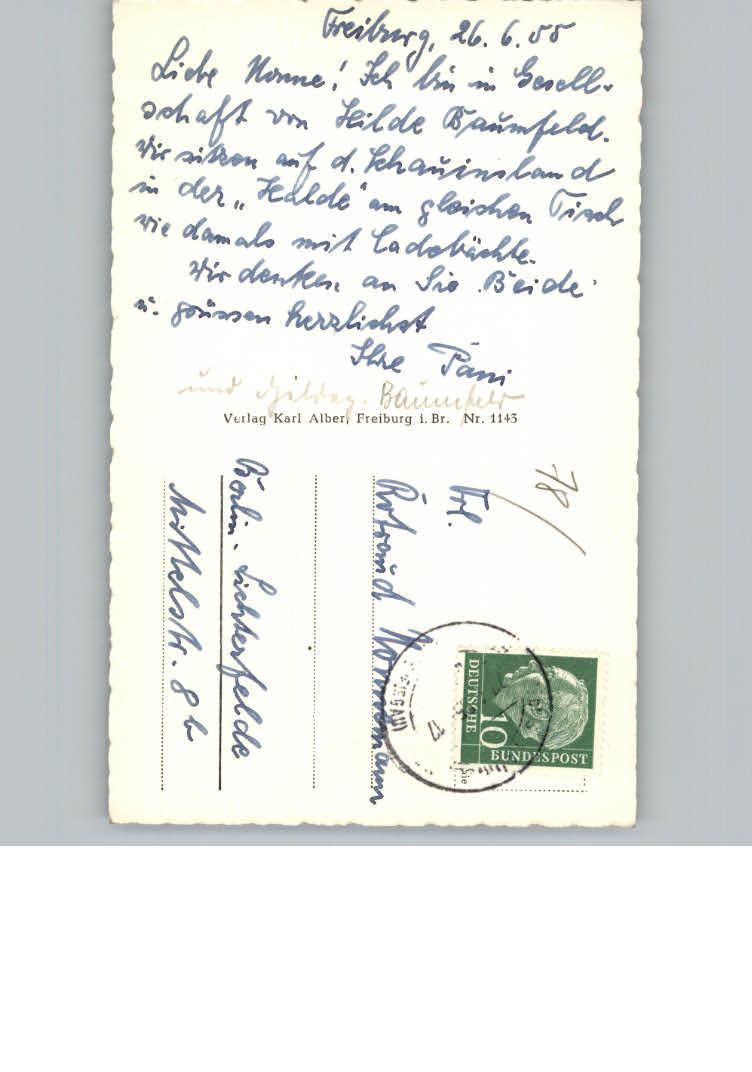 Freiburg, 26. 6. 55
Liebe Nonne! Ich bin in Gesell-
schaft von Hilde Baumfeld.
Wir sitzen auf d. Schauinsland
in der „Halde" am gleichen Tisch
wie damals mit
Wir denken an Sie Beide
u. grüssen herzlichst
Ihre Pani
und Baumfeld
Verlag Karl Alber, Freiburg i. Br. Nr. 1143
78
Frl.
Rotraud
Berlin-Lichterfelde
Mittelstr. 8b
DEUTSCHE
BUNDESPOST
10